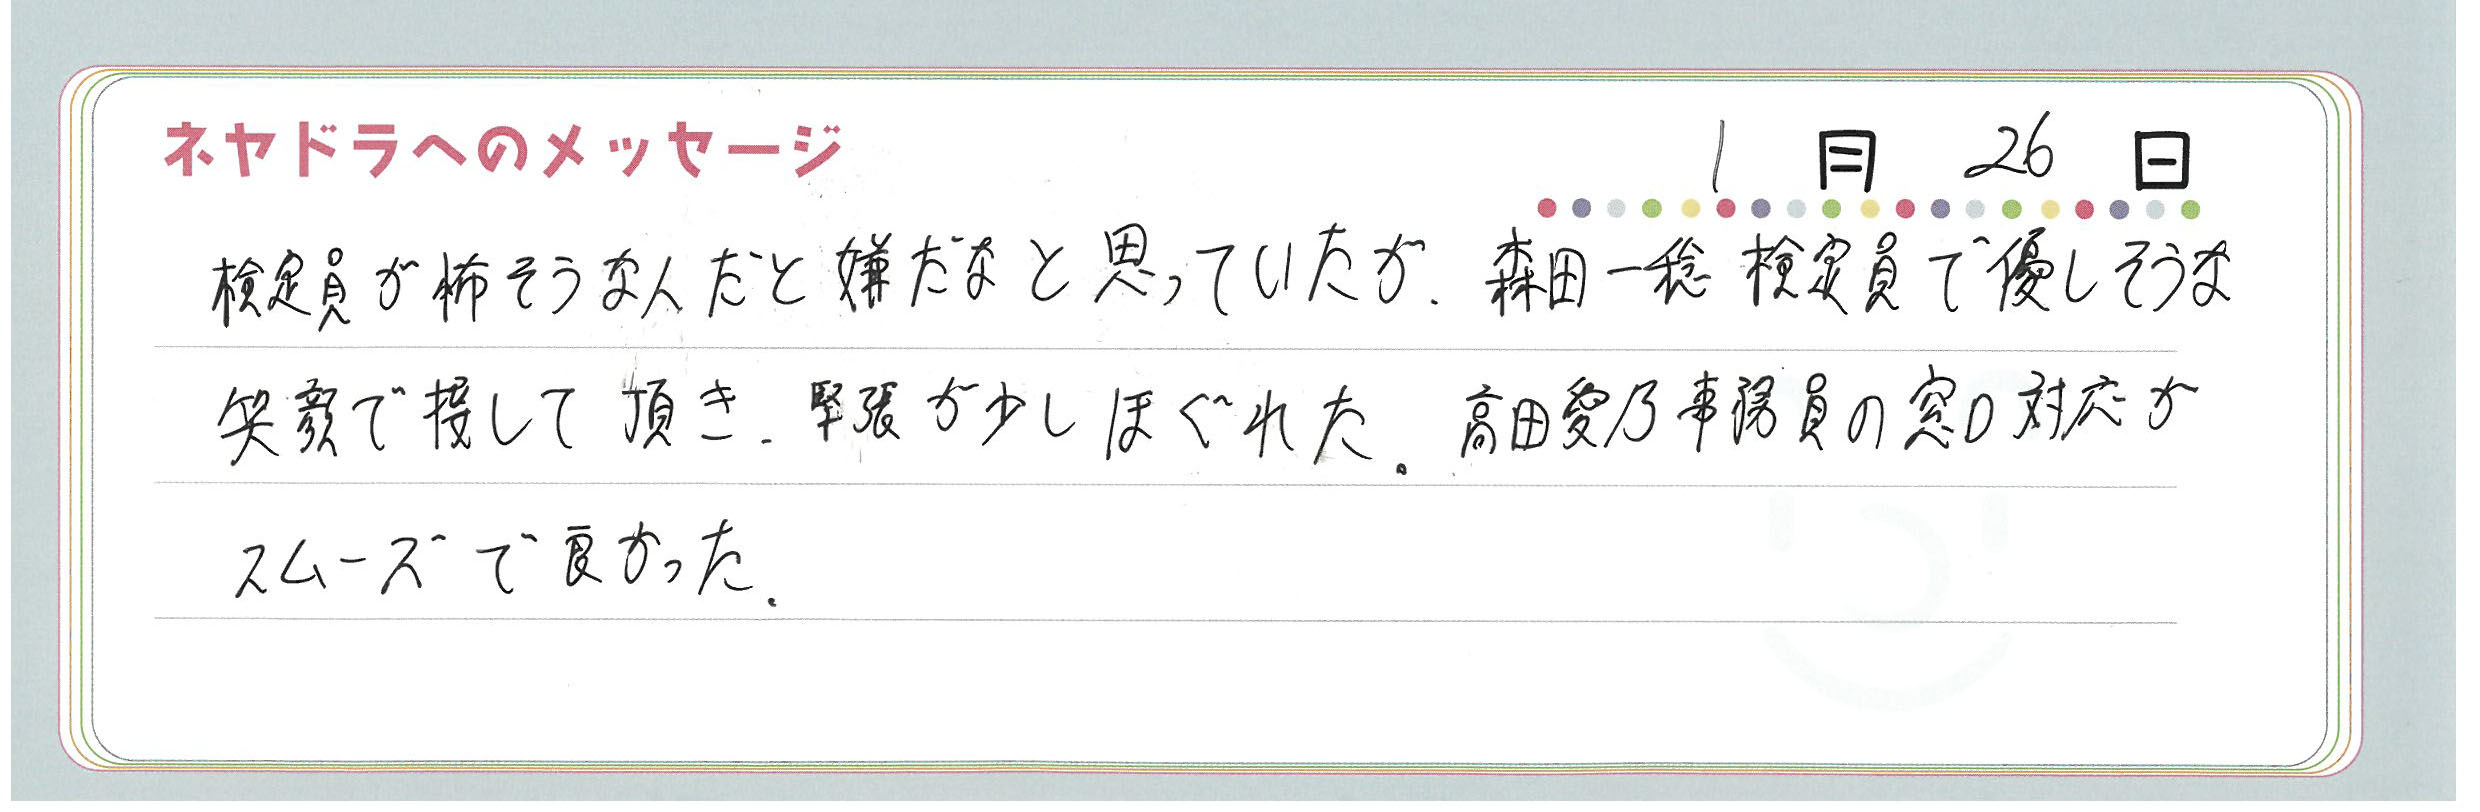 ネヤドラへのメッセージ
1月26日
検定員が怖そうなんだと嫌だなと思っていたが、森田一稔検定員で優しそうな
笑顔で接して頂き、緊張が少しほぐれた。高田愛乃事務員の窓口対応が
スムーズで良かった。